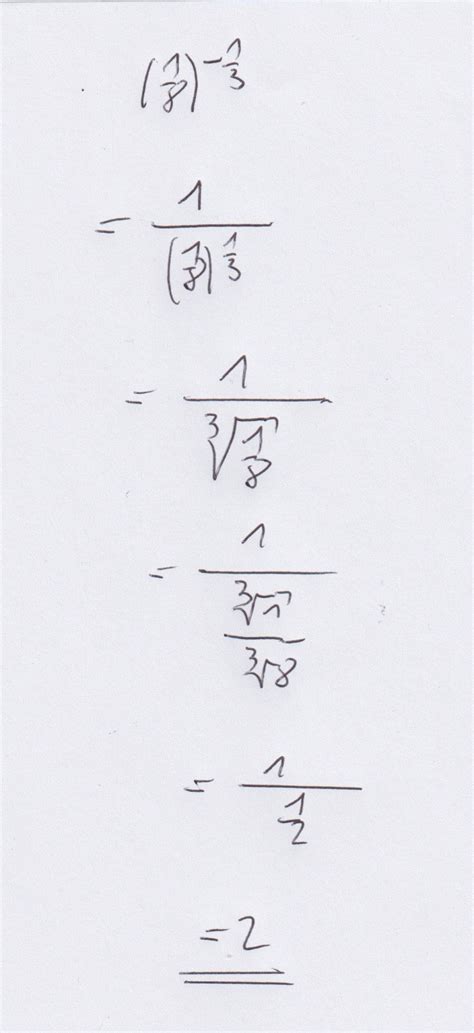 (1/8)^{-1/3}
= 1/((1/8)^{1/3})
= 1/∛(1/8)
= 1/(∛1/∛8)
= 1/(1/2)
= 2